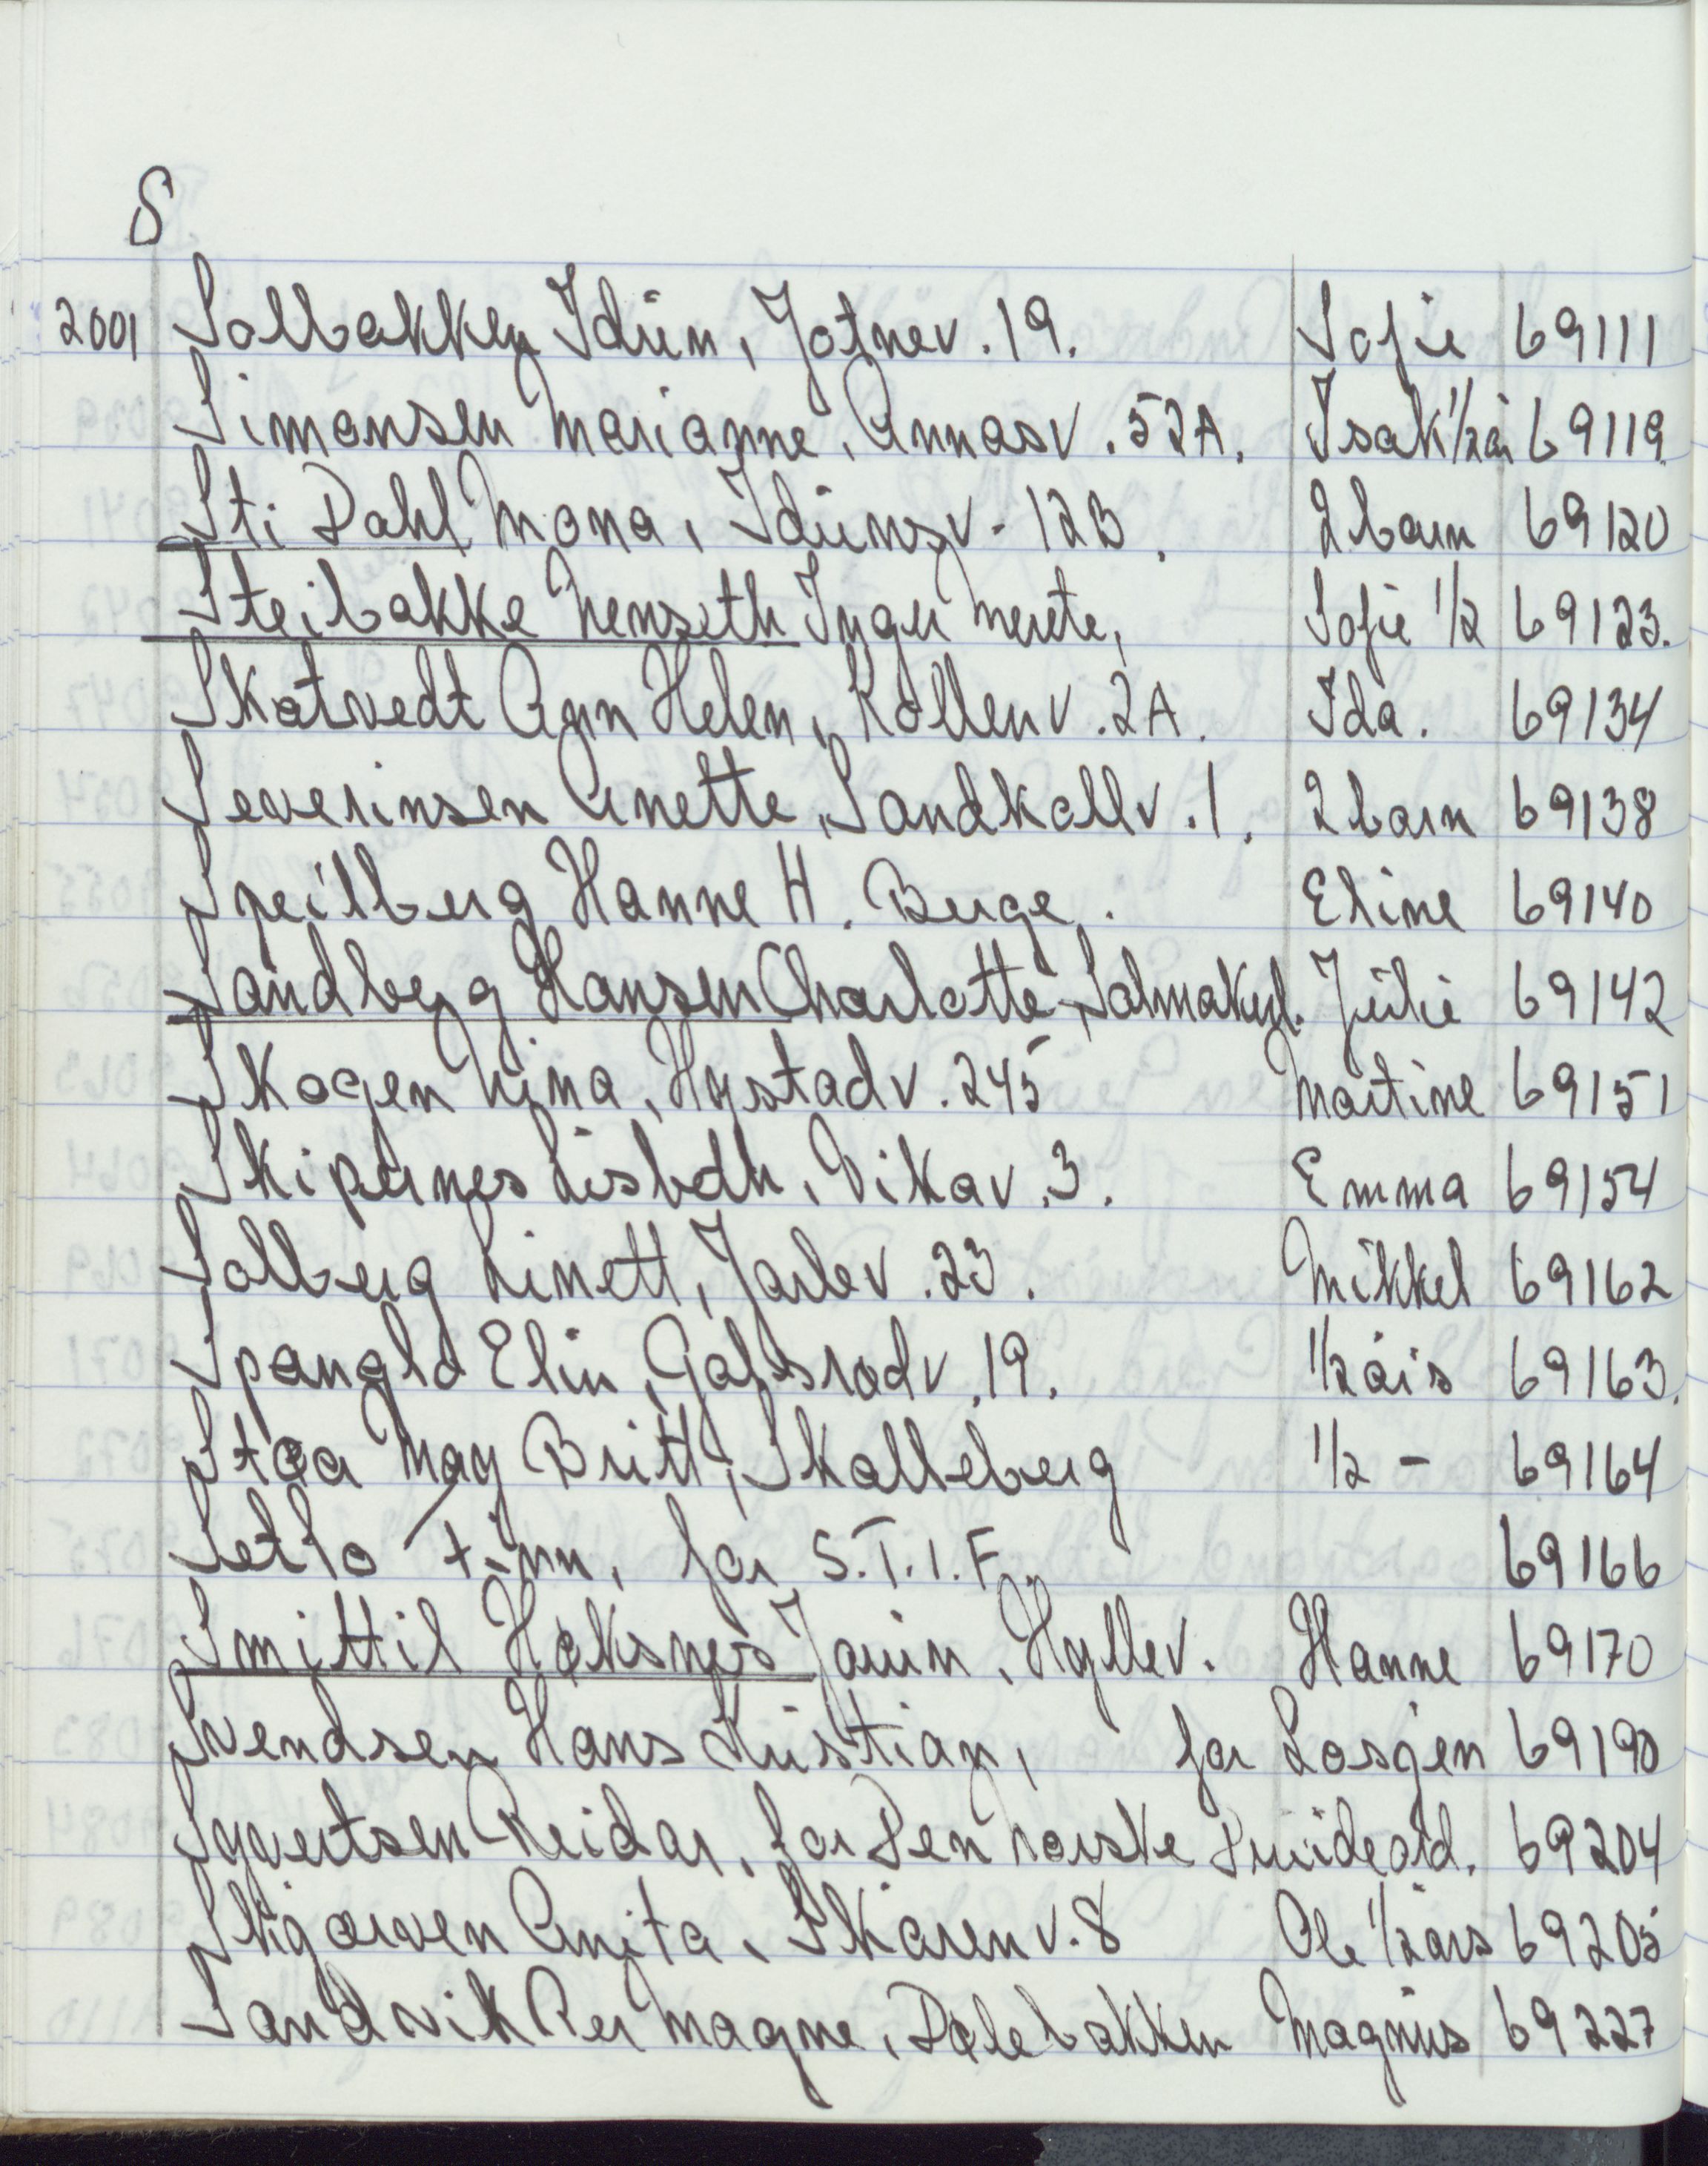 S
2001 Solbakken Idun, Jotnev. 19. Sofie 69111
Simonsen Marianne, Annasv. 52A. Isak 1/2 år 69119
Sti Dahl Mona, Idunsv. 12B. 2 barn 69120
Steibakke Nenseth Inger Merete, Sofie 1/2 69123.
Skatvedt Ann Helen, Kollenv. 2A. Ida. 69134
Severinsen Anette, Sandkollv. 1. 2 barn 69138
Speilberg Hanne H. Berge. Eline 69140
Sandberg Hansen Charlotte, Julie 69142
Skogen Nina, Hystadv. 245 Martine 69151
Skipenes Lisbeth, Vikav. 3. Emma 69154
Solberg Linett, Jarlev. 23. Mikkel 69162
Elin, 19. 1/2 års 69163.
Støa May Britt, Skalleberg 1/2 - 69164
Finn, for S.T.I.F. 69166
Smittil Høksnes Jorun, Hyllev. Hanne 69170
Svendsen Hans Kristian, for Losjen 69190
Syvertsen Reidar, for Den norske 69204
Anita, Skarenv. 8 Ole 1/2 års 69205
Sandvik Per Magne, Dalebakken Magnus 69227